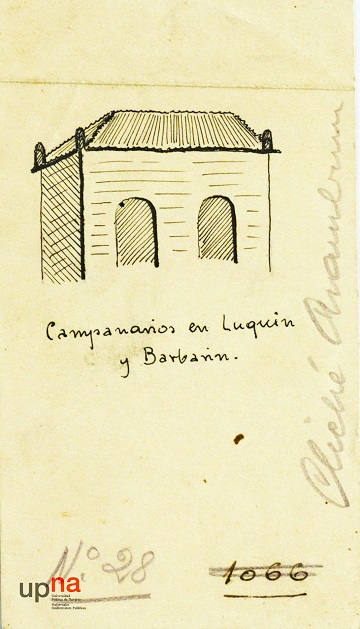 Campanarios en Luquin
y Barbarin.
Cliché Aramburu
Nº 28
1066
upna
Universidad
Pública de Navarra
Nafarroako
Unibertsitate Publikoa